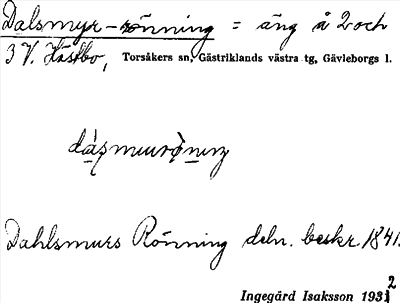 Dalsmyr-rönning = äng å 2 och
3 V. Hästbo, Torsåkers sn, Gästriklands västra tg, Gävleborgs l.
Dahlsmurs Rönning deln. beskr. 1841.
Ingegärd Isaksson 1932